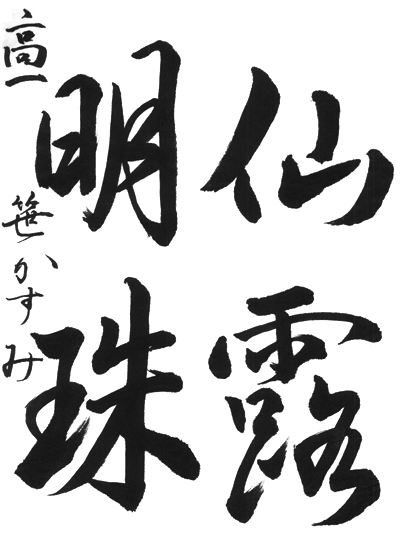 仙露
明珠
高一 笹かすみ